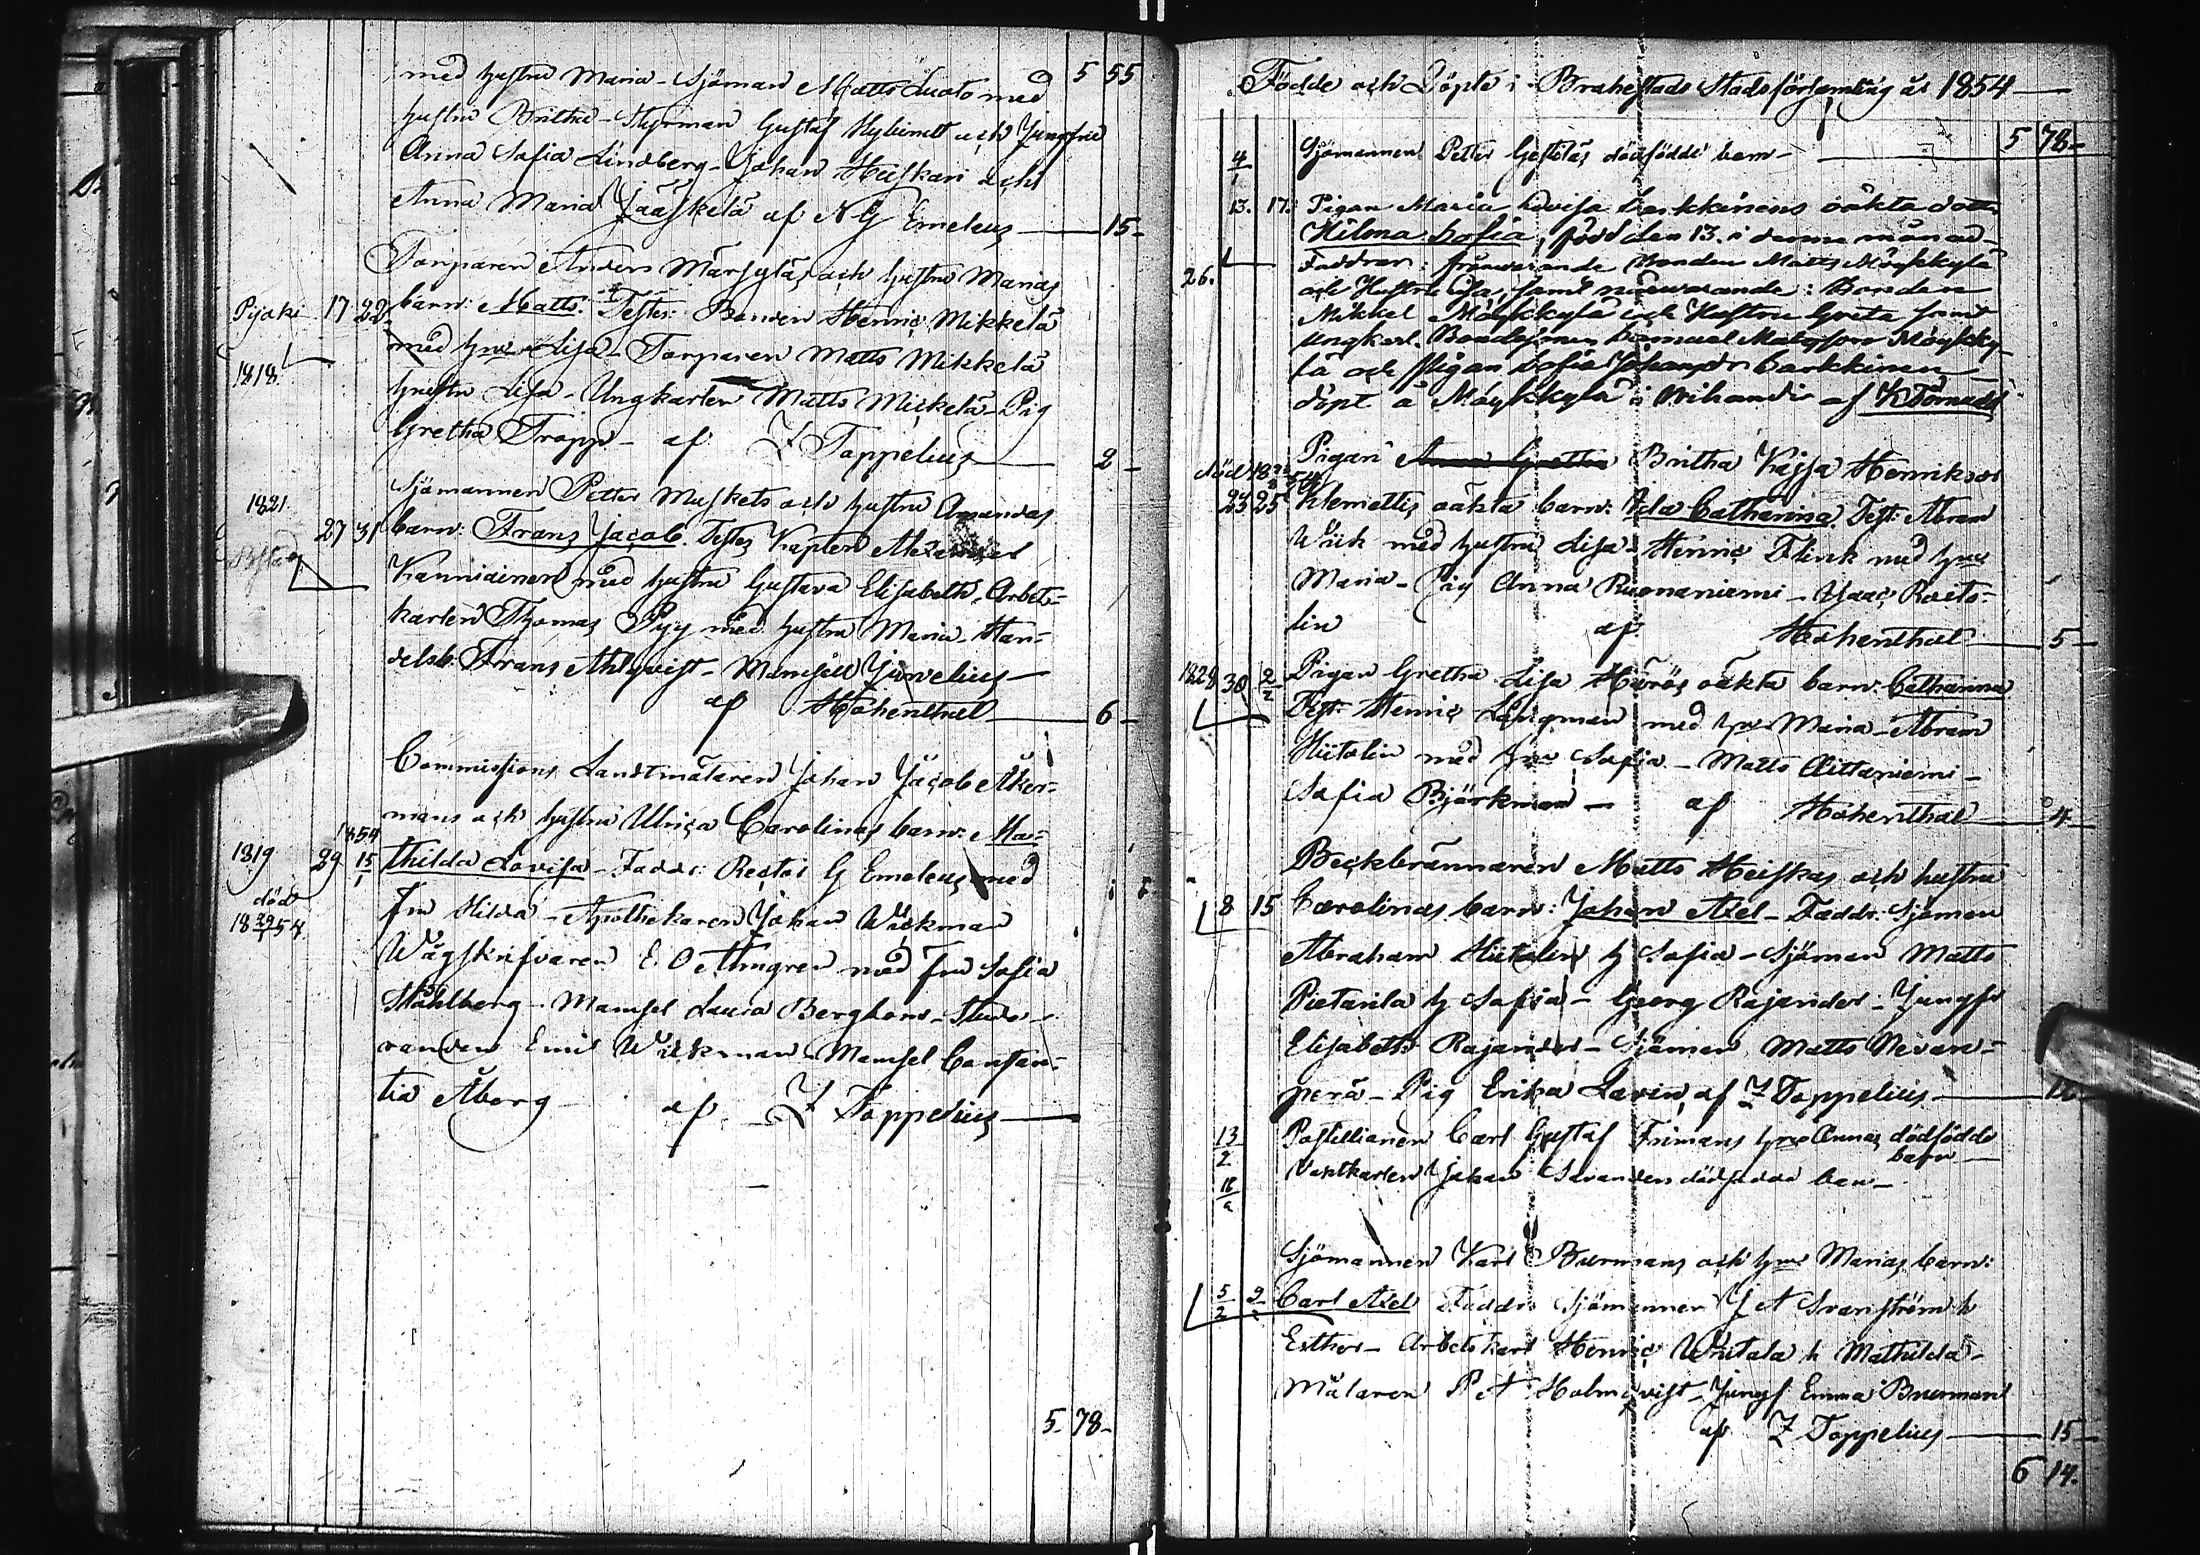 med hustru Maria - Sjöman Matts Luoto med 5 55
hustru Britha - Styrman Gustaf Nylund och Jungfru
Anna Sofia Lindberg - Johan Heiskari och
Anna Maria Jääskelä af N G Emeleus 15-
Torparen Anders Märsyläs och hustru Marias
Pijaki 17 22 barn: Matts. Testes: Bonden Henric Mikkelä
med hru Lisa - Torparen Matts Mikkelä
1818
hustru Lisa - Ungkarlen Matts Mickelä - Pig
Gretha Tropp - af Z Toppelius 2-
Sjömannen Petter Muskets och hustru Amandas
1821
27 31 barn: Frans Jacob. Testes Kapten Alexander
Kanniainen med hustru Gustava Elisabeth, Arbets-
karlen Thomas Pyy med hustru Maria - Han-
delsb. Frans Ahlqvist - Mamsell Juvelius
af Hohenthal 6-
Commissions Landtmätaren Johan Jacob Åker-
mans och hustru Ulrica Carolinas barn: Ma-
1854
1819 29 15/1 thilda Lovisa - Faddr: Rector G Emeleus med
död
18 29/1 54
fru Hilda - Apothekaren Johan Wickman
Wågskrifvaren E. O Almgren med fru Sofia
Ståhlberg - Mamsel Laura Bergbom - Stude-
randen Emil Wickman - Mamsel Constan-
tia Åberg af Z Toppelius
5- 78-
Födde och Döpte i Brahestads Stadsförsamling år 1854
4/1 Sjömannen Petter dödfödde barn 5 78-
13. 17. Pigan Maria Lovisa Karkkinens oäkta dotter
Hilma Sofia, född den 13. i denna månad
26. Faddrar: frånvarande Bonden Matts Möykkylä
och Hustru Lisa, samt närvarande: Bonden
Mikkel Möykkylä och Hustru Greta samt
ungkarl. Bondesonen Samuel Matsson Möykky-
lä och Pigan Sofia Johansdr Karkkinen
döpt å Möykkylä i Wihandi af K Törnudd
Pigan Britha Kajsa Henriksdr
död
23 25 Klemettis oäkta barn: Ida Catharina Test: Abram
Wiik med hustru Lisa - Henric Flink med hru
Maria - Pig Anna Ruonaniemi - Isaac Roito-
lin af Hohenthal 5-
1828 30 2/2 Pigan Gretha Lisa Härös oäkta barn: Catharina
Test: Henric Långman med hru Maria - Abram
Hiitolin med hru Sofia - Matts Aittaniemi -
Safia Björkman - af Hohenthal 4-
Beckbrännaren Matts Heiskas och hustru
8 15 Carolinas barn: Johan Axel - Faddr: Sjöman
Abraham Hiitolin h Safia - Sjöman Matts
Pietarila h Safia - Georg Rajander - Jungfr
Elisabeth Rajander - Sjöman Matts Nevan-
perä - Pig Erika Lavin, af Z Toppelius
13/2 Postillionen Carl Gustaf Frimans hru Annas dödfödde
barn
Vaktkarlen Johan Savanders dödfödda barn -
Sjömannen Karl Burmans och hru Marias barn:
5/2 Carl Axel Faddr: Sjömannen J A Svanström h
Esther - Arbetskarl Henric Untala h Mathilda -
Målaren P A Holmqvist - Jungf Emma Burman
af Z Toppelius 15-
6 14.